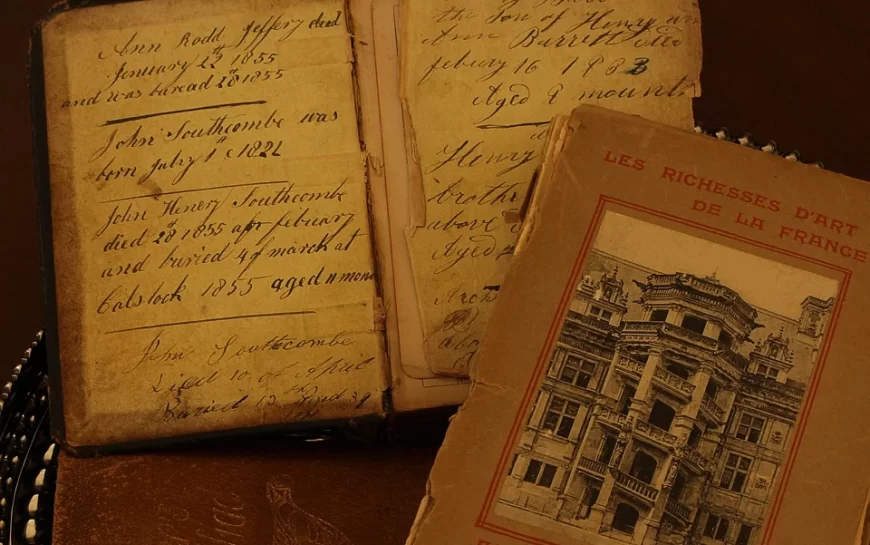 Ann Rodd Jeffery died
January 23th 1855
and was buread 28th 1855
John Southcombe was
born July 1st 1821
John Henery Southcombe
died 28 1855 apr febuary
and buried 4 of march at
Calstock 1855 aged 11 mon
John Southcombe
Died 10 of April
Buried 13
the Son of Henry
Ann Barrett died
febury 16 1883
Aged 9 mounth
Henry
brothe
above
Aged
LES RICHESSES D'ART
DE LA FRANCE